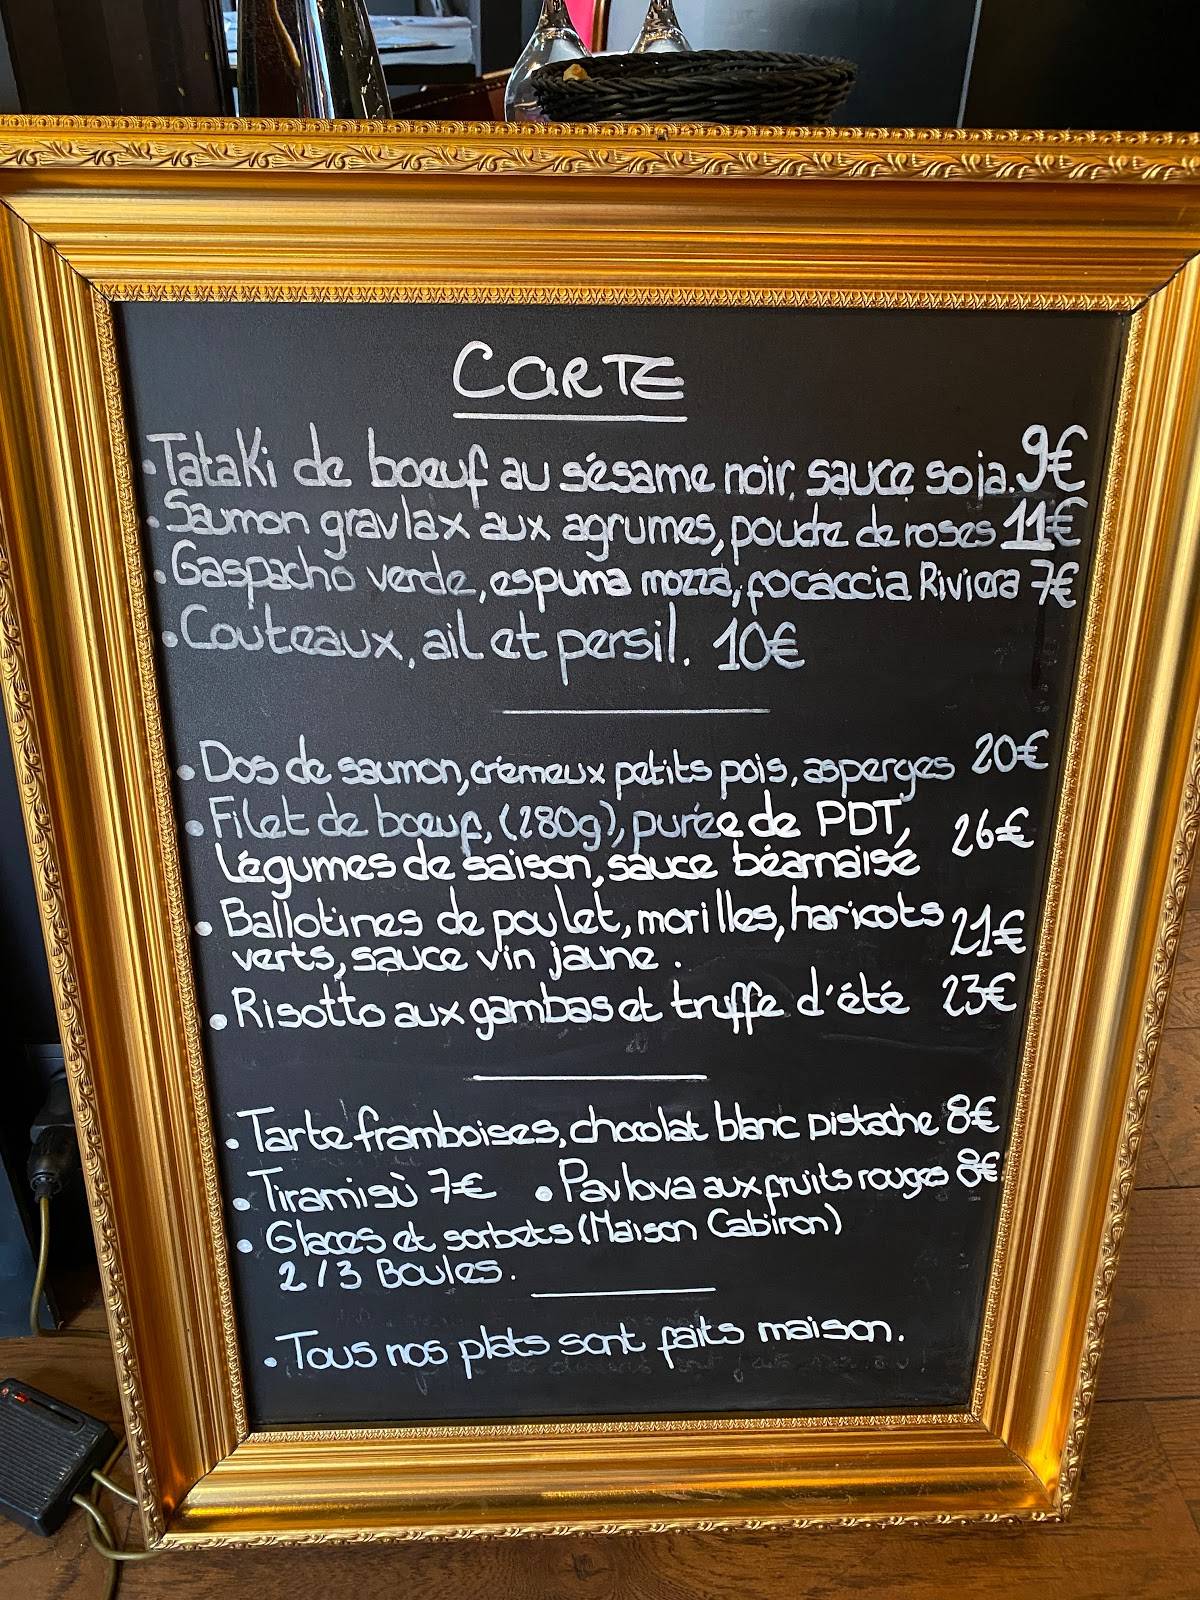 CARTE
• Tataki de boeuf au sésame noir, sauce soja. 9€
• Saumon gravlax aux agrumes, poudre de roses 11€
• Gaspacho verde, espuma mozza, focaccia Riviera 7€
• Couteaux, ail et persil. 10€
• Dos de saumon, crémeux petits pois, asperges 20€
• Filet de boeuf, (280g), purée de PDT, 26€
légumes de saison, sauce béarnaise
• Ballotines de poulet, morilles, haricots 21€
verts, sauce vin jaune.
• Risotto aux gambas et truffe d'été 23€
• Tarte framboises, chocolat blanc pistache 8€
• Tiramisù 7€ • Pavlova aux fruits rouges 8€
• Glaces et sorbets (Maison Cabiron)
2 / 3 Boules.
• Tous nos plats sont faits maison.